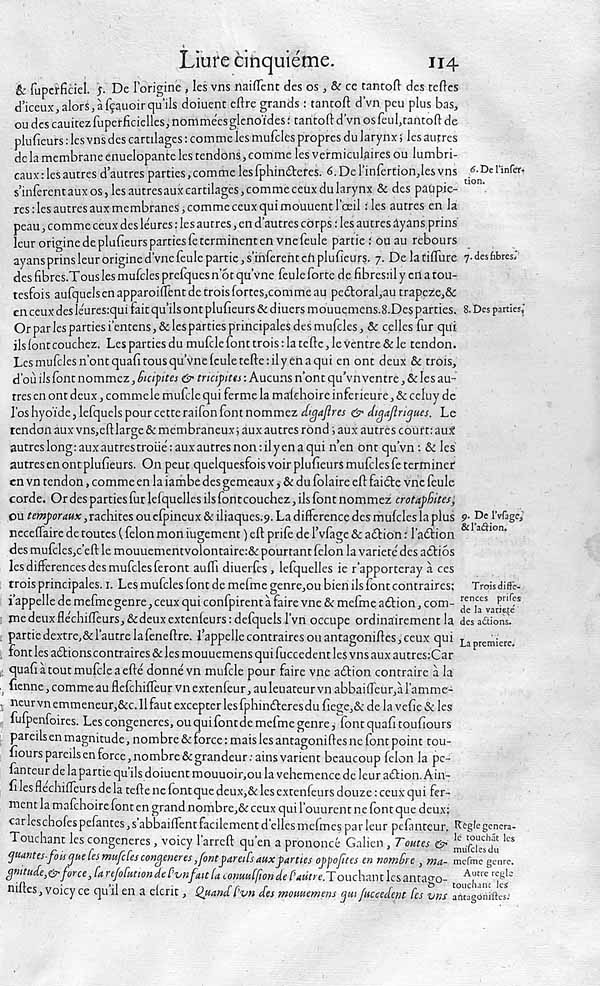 Liure cinquiéme. 114
& ſuperficiel. 5. De l'origine, les vns naiſſent des os, & ce tantoſt des teſtes
d'iceux, alors, à ſçauoir qu'ils doiuent eſtre grands : tantoſt d'vn peu plus bas,
ou des cauitez ſuperficielles, nommées glenoïdes : tantoſt d'vn os ſeul, tantoſt de
pluſieurs : les vns des cartilages : comme les muſcles propres du larynx ; les autres
de la membrane enuelopante les tendons, comme les vermiculaires ou lumbri-
caux : les autres d'autres parties, comme les ſphincteres. 6. De l'inſertion, les vns
s'inſerent aux os, les autres aux cartilages, comme ceux du larynx & des paupie-
res : les autres aux membranes, comme ceux qui mouuent l'œil : les autres en la
peau, comme ceux des léures : les autres, en d'autres corps : les autres ayans prins
leur origine de pluſieurs parties ſe terminent en vne ſeule partie : ou au rebours
ayans prins leur origine d'vne ſeule partie, s'inſerent en pluſieurs. 7. De la tiſſure
des fibres. Tous les muſcles preſques n'ōt qu'vne ſeule ſorte de fibres : il y en a tou-
tesfois auſquels en apparoiſſent de trois ſortes, comme au pectoral, au trapeze, &
en ceux des léures : qui fait qu'ils ont pluſieurs & diuers mouuemens. 8. Des parties.
Or par les parties i'entens, & les parties principales des muſcles, & celles ſur qui
ils ſont couchez. Les parties du muſcle ſont trois : la teſte, le ventre & le tendon.
Les muſcles n'ont quaſi tous qu'vne ſeule teſte : il y en a qui en ont deux & trois,
d'où ils ſont nommez, bicipites & tricipites : Aucuns n'ont qu'vn ventre, & les au-
tres en ont deux, comme le muſcle qui ferme la maſchoire inferieure, & celuy de
l'os hyoïde, leſquels pour cette raiſon ſont nommez digaſtres & digaſtriques. Le
tendon aux vns, eſt large & membraneux ; aux autres rond ; aux autres court : aux
autres long : aux autres troüé : aux autres non : il y en a qui n'en ont qu'vn : & les
autres en ont pluſieurs. On peut quelquesfois voir pluſieurs muſcles ſe terminer
en vn tendon, comme en la iambe des gemeaux, & du ſolaire eſt faicte vne ſeule
corde. Or des parties ſur leſquelles ils ſont couchez, ils ſont nommez crotaphites,
ou temporaux, rachites ou eſpineux & iliaques. 9. La difference des muſcles la plus
neceſſaire de toutes (ſelon mon iugement) eſt priſe de l'vſage & action : l'action
des muſcles, c'eſt le mouuement volontaire : & pourtant ſelon la varieté des actiōs
les differences des muſcles ſeront auſſi diuerſes, leſquelles ie r'apporteray à ces
trois principales. 1. Les muſcles ſont de meſme genre, ou bien ils ſont contraires :
i'appelle de meſme genre, ceux qui conſpirent à faire vne & meſme action, com-
me deux fléchiſſeurs, & deux extenſeurs : deſquels l'vn occupe ordinairement la
partie dextre, & l'autre la ſeneſtre. I'appelle contraires ou antagoniſtes, ceux qui
font les actions contraires & les mouuemens qui ſuccedent les vns aux autres : Car
quaſi à tout muſcle a eſté donné vn muſcle pour faire vne action contraire à la
ſienne, comme au fleſchiſſeur vn extenſeur, au leuateur vn abbaiſſeur, à l'amme-
neur vn emmeneur, &c. Il faut excepter les ſphincteres du ſiege, & de la veſie & les
ſuſpenſoires. Les congeneres, ou qui ſont de meſme genre, ſont quaſi touſiours
pareils en magnitude, nombre & force : mais les antagoniſtes ne ſont point tou-
ſiours pareils en force, nombre & grandeur : ains varient beaucoup ſelon la pe-
ſanteur de la partie qu'ils doiuent mouuoir, ou la vehemence de leur action. Ain-
ſi les fléchiſſeurs de la teſte ne ſont que deux, & les extenſeurs douze : ceux qui fer-
ment la maſchoire ſont en grand nombre, & ceux qui l'ouurent ne ſont que deux :
car les choſes peſantes, s'abbaiſſent facilement d'elles meſmes par leur peſanteur.
Touchant les congeneres, voicy l'arreſt qu'en a prononcé Galien, Toutes &
quantes-fois que les muſcles congeneres, ſont pareils aux parties oppoſites en nombre, ma-
gnitude, & force, la reſolution de l'vn fait la conuulſion de l'autre. Touchant les antago-
niſtes, voicy ce qu'il en a eſcrit, Quand l'vn des mouuemens qui ſuccedent les vns
6. De l'inſer-
tion.
7. des fibres.
8. Des parties.
9. De l'vſage,
& l'action.
Trois diffe-
rences priſes
de la varieté
des actions.
La premiere.
Règle genera-
le touchāt les
muſcles du
meſme genre.
Autre regle
touchant les
antagoniſtes.